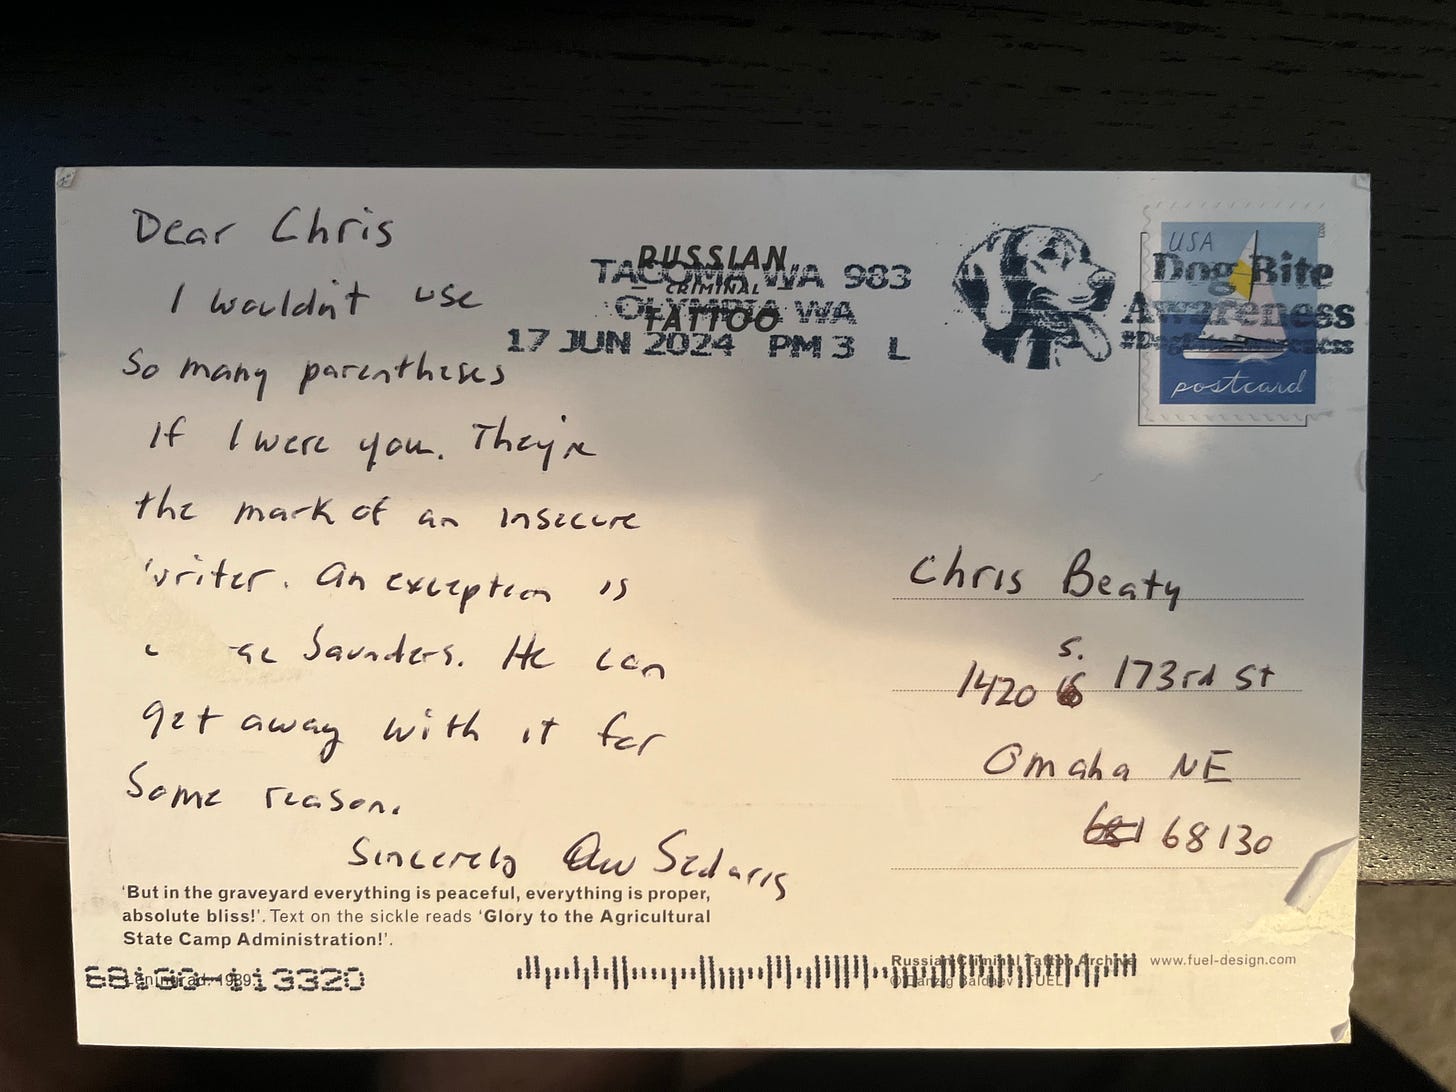 Dear Chris
I wouldn't use
so many parentheses
If I were you. They're
the mark of an insecure
writer. An exception is
Saunders. He can
get away with it for
some reason.
Sincerely Sedaris
'But in the graveyard everything is peaceful, everything is proper,
absolute bliss!'. Text on the sickle reads 'Glory to the Agricultural
State Camp Administration!'.
Leningrad. 1989.
68130-113320
RUSSIAN
CRIMINAL
TATTOO
TACOMA WA 983
OLYMPIA WA
17 JUN 2024 PM 3 L
USA
postcard
Dog Bite
Awareness
#DogBiteAwareness
Chris Beaty
1420 S. 173rd St
Omaha NE
68130
Russian Criminal Tattoo Archive
© Danzig Baldaev FUEL
www.fuel-design.com